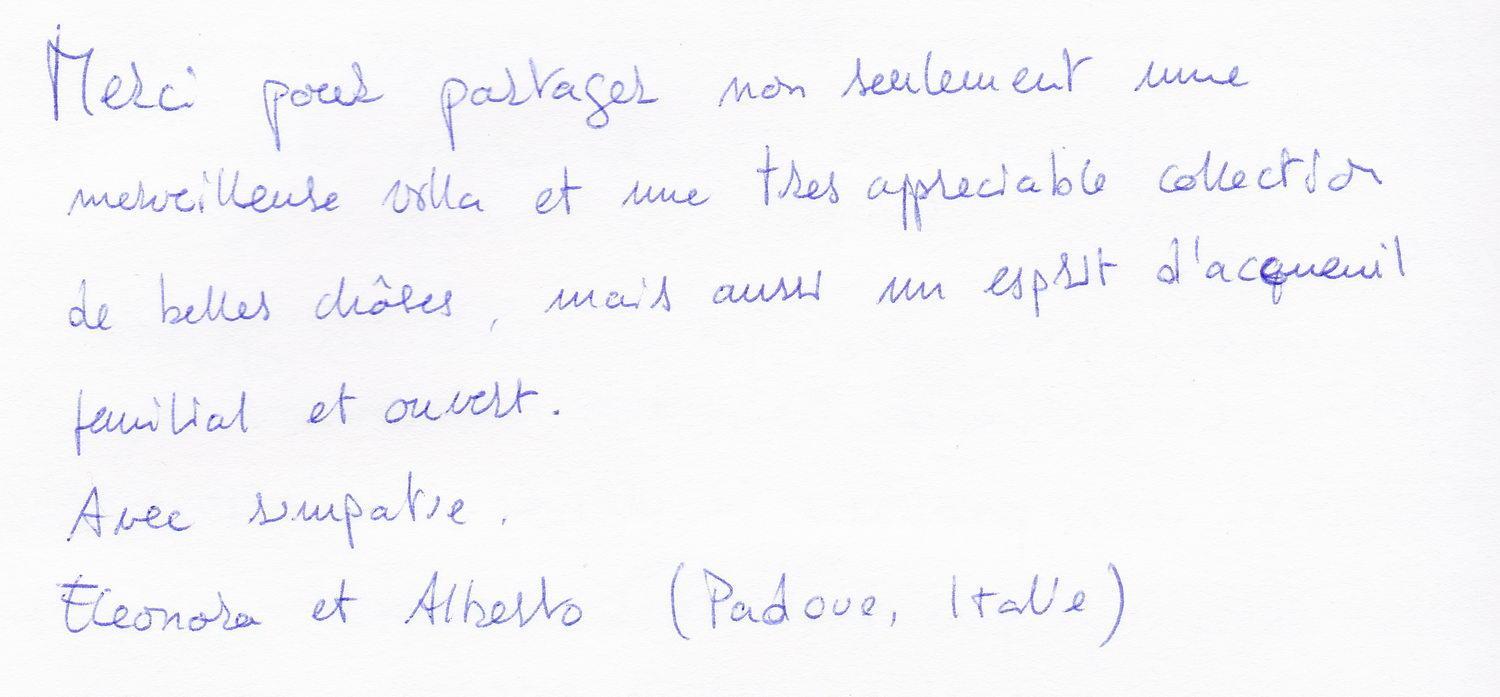 Merci pour partager non seulement une
merveilleuse villa et une tres appreciable collection
de belles chôses, mais aussi un esprit d'acqueuil
familial et ouvert.
Avec simpatie.
Eleonora et Alberto (Padoue, Italie)